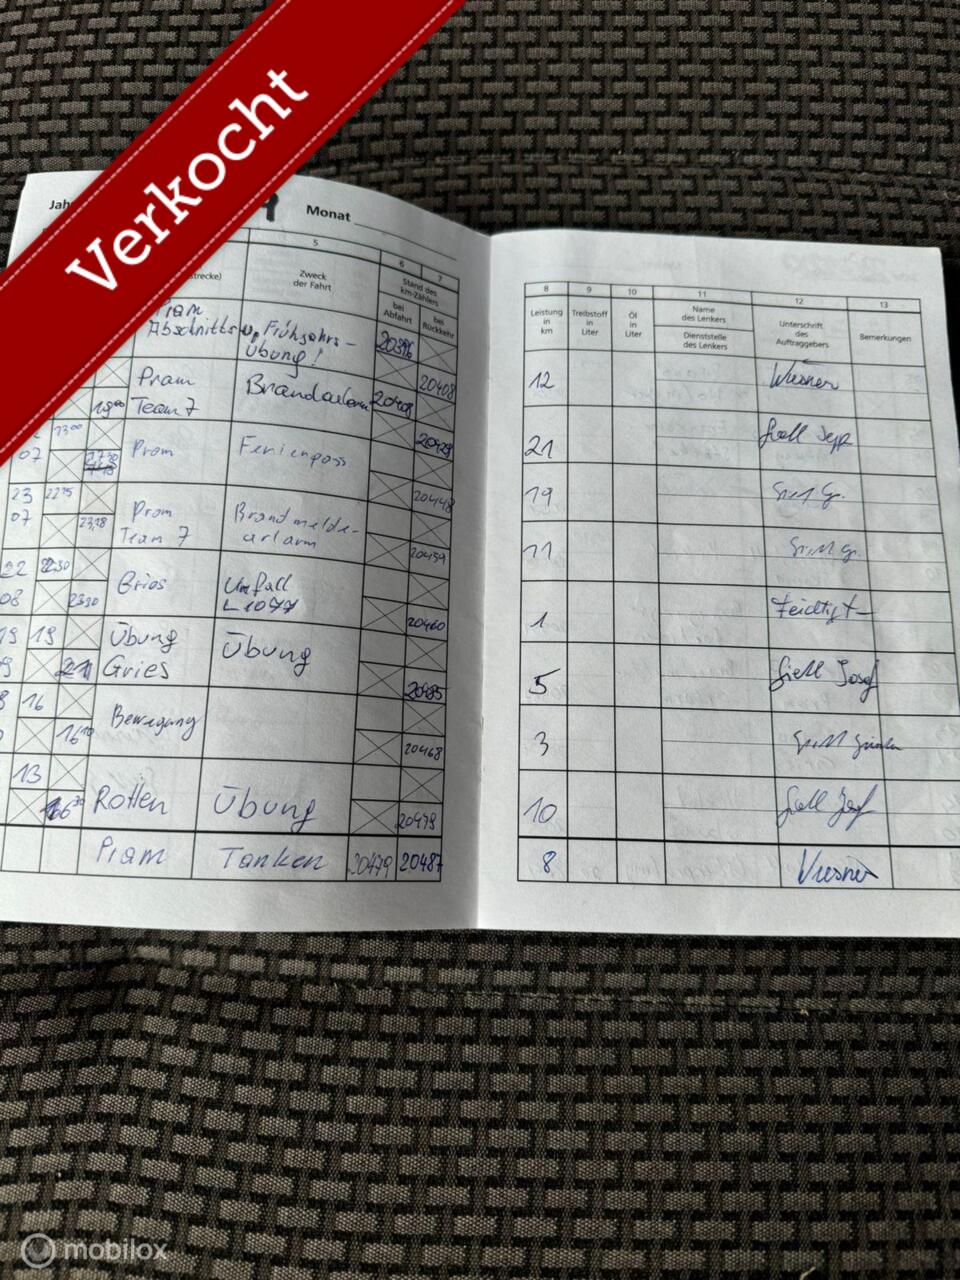 Verkocht
Monat
5
6
7
Zweck
der Fahrt
Stand des
km-Zählers
bei
Abfahrt
bei
Rückkehr
Pram
Abschnitts u. Frühjahrs-
Übung!
20396
20408
Pram
Brandalarm
20408
19⁰⁰
Team 7
20429
13⁰⁰
07
Pram
Ferienpass
20448
23
22¹⁵
07
23,18
Pram
Team 7
Brandmelde-
arlarm
20459
22
22:30
08
23 30
Gries
Unfall
L 1077
20460
19
19
21
Übung
Gries
Übung
20465
16
16¹⁰
Bewegung
20468
13
16³⁰
Rotten
Übung
20479
Pram
Tanken
20479
20487
8
9
10
11
12
13
Leistung
in
km
Treibstoff
in
Liter
Öl
in
Liter
Name
des Lenkers
Dienststelle
des Lenkers
Unterschrift
des
Auftraggebers
Bemerkungen
12
Wiesner
21
19
11
1
5
Josef
3
10
8
Wiesner
mobilox